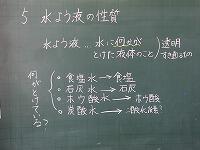 5 水よう液の性質
水よう液…水に何かが
とけた液体のこと
透明
すき通るもの
何がとけている?
・食塩水→食塩
・石灰水→石灰
・ホウ酸水→ホウ酸
・炭酸水→二酸化炭素?